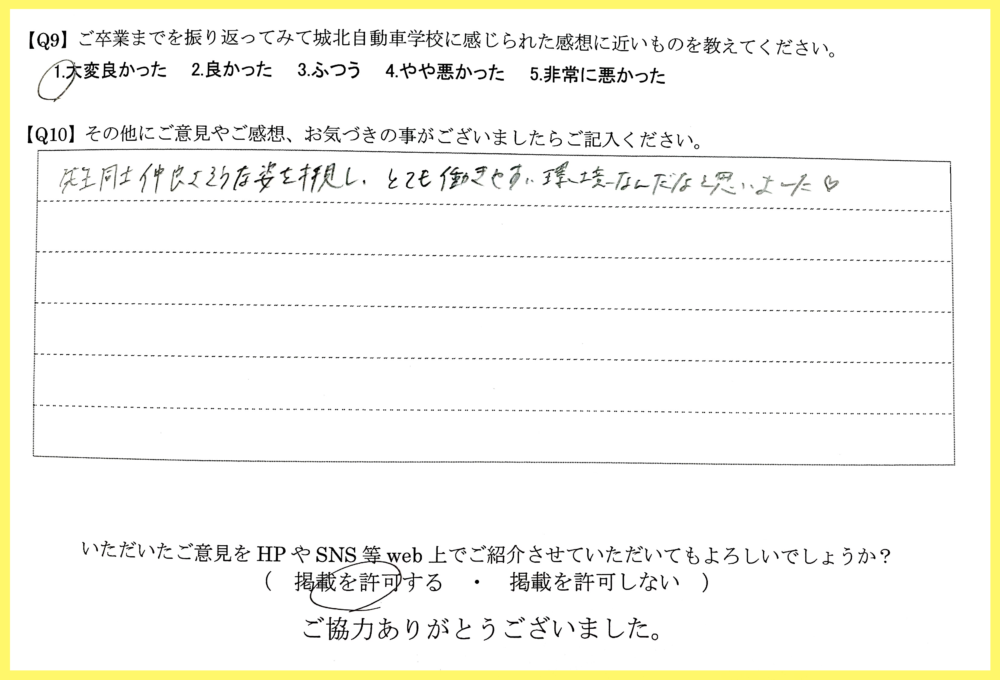 【Q9】ご卒業までを振り返ってみて城北自動車学校に感じられた感想に近いものを教えてください。
1.大変良かった 2.良かった 3.ふつう 4.やや悪かった 5.非常に悪かった
【Q10】その他にご意見やご感想、お気づきの事がございましたらご記入ください。
先生同士仲良さそうな姿を拝見し、とても働きやすい環境なんだなと思いました♡
いただいたご意見をHPやSNS等web上でご紹介させていただいてもよろしいでしょうか？
（ 掲載を許可する ・ 掲載を許可しない ）
ご協力ありがとうございました。